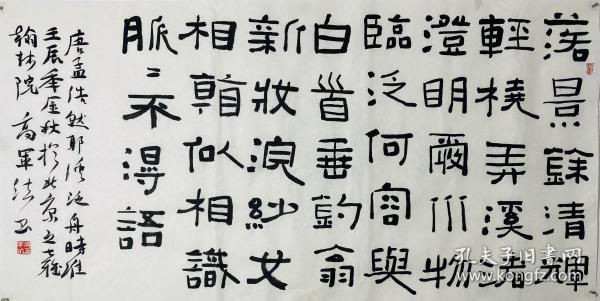 落景餘清輝
輕橈弄溪渚
澄明愛水物
臨泛何容與
白首垂釣翁
新妝浣紗女
相似相識
脈〻不得語
唐孟浩然耶溪泛舟時維
壬辰年金秋於北京
翰林院 高軍法书
孔夫子旧书网